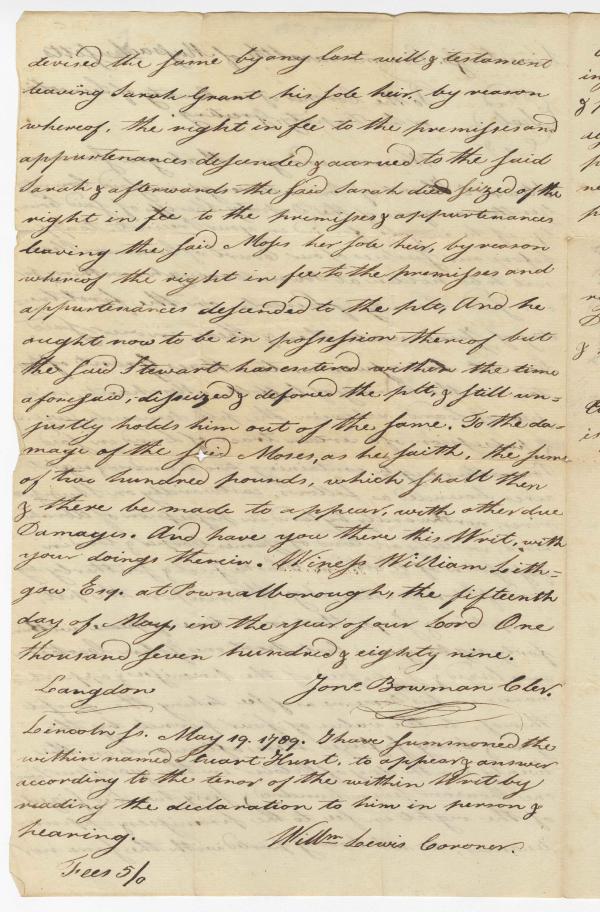 devised the same by any last will & testament
leaving Sarah Grant his sole heir, by reason
whereof, the right in fee to the premisses and
appurtenances descended & accrued to the said
Sarah & afterwards the said Sarah died seized of the
right in fee to the premisses & appurtenances
leaving the said Moses her sole heir, by reason
whereof the right in fee to the premisses and
appurtenances descended to the plt, And he
ought now to be in possession thereof but
the said Stewart has entered within the time
aforesaid, disseized & deforced the plt, & still un=
justly holds him out of the same. To the da=
mage of the said Moses, as he saith, the sum
of two hundred pounds, which shall then
& there be made to appear, with other due
Damages. And have you there this Writ, with
your doings therein. Winess William Lith=
gow Esq. at Pownalborough, the fifteenth
day of May, in the year of our Lord One
thousand seven hundred & eighty nine.
Langdon Jona. Bowman Cler.
Lincoln ss. May 19. 1789. I have summoned the
within named Stuart Hunt. to appear & answer
according to the tenor of the within Writ by
reading the declaration to him in person &
hearing.
Willm Lewis Coroner.
Fees 5/0